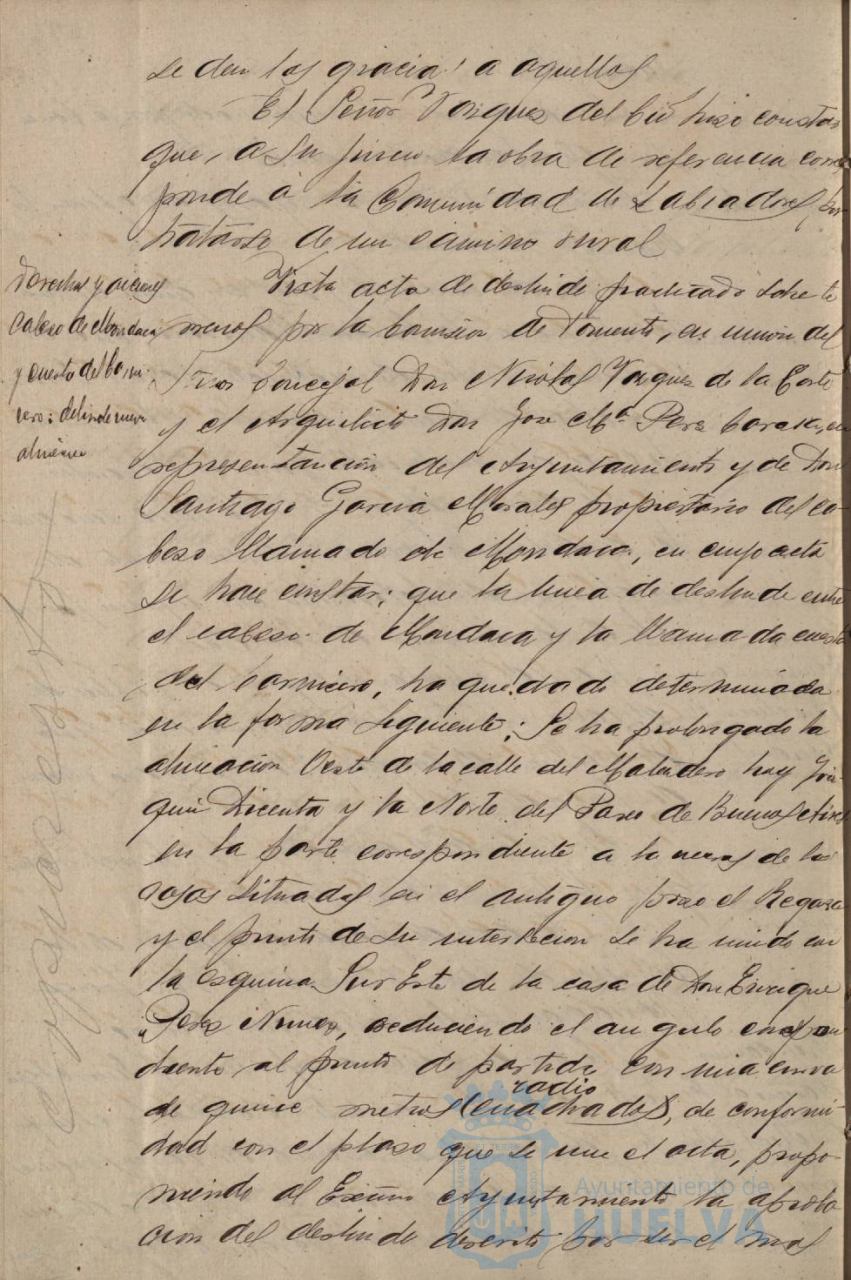 se dan las gracias a aquellos
El Señor Vazquez del Cid hizo constar
que, a su juicio la obra de referencia corres
ponde á la Comunidad de Labradores, por
tratarse de un camino rural
Derechos y acciones
Cabezo de Mondaca
y cuesta del Carni-
cero: deslinde nueva
alineación
Vista acta de deslinde practicado sobre te
rrenos por la Comision de Fomento, en union del
Señor Concejal Don Nicolas Vazquez de la Corte
y el Arquitecto Don Jose Mª Perez Carasa, en
representación del Ayuntamiento y de Don
Santiago Garcia Morales propietario del ca-
bezo llamado de Mondaca, en cuyo acta
se hace constar; que la linea de deslinde entre
el cabezo de Mondaca y la llamada cuesta
del Carnicero, ha quedado determinada
en la forma siguiente; Se ha prolongado la
alineacion Oeste de la calle del Matadero hoy Joa-
quin Dicenta y la Norte del Paseo de Buenos Aires
en la parte correspondiente a la acera de las
casas situadas en el antiguo paseo el
y el punto de su interseccion se ha unido con
la esquina Sur Este de la casa de Don Enrique
Perez Nuñez, reduciendo el angulo correspon
diente al punto de partida con una curva
radio
de quince metros (cuadrados), de conformi-
dad con el plano que se une el acta, propo-
niendo al Excmo Ayuntamiento la aproba
cion del deslinde descrito por ser el mas
Ayuntamiento de
HUELVA